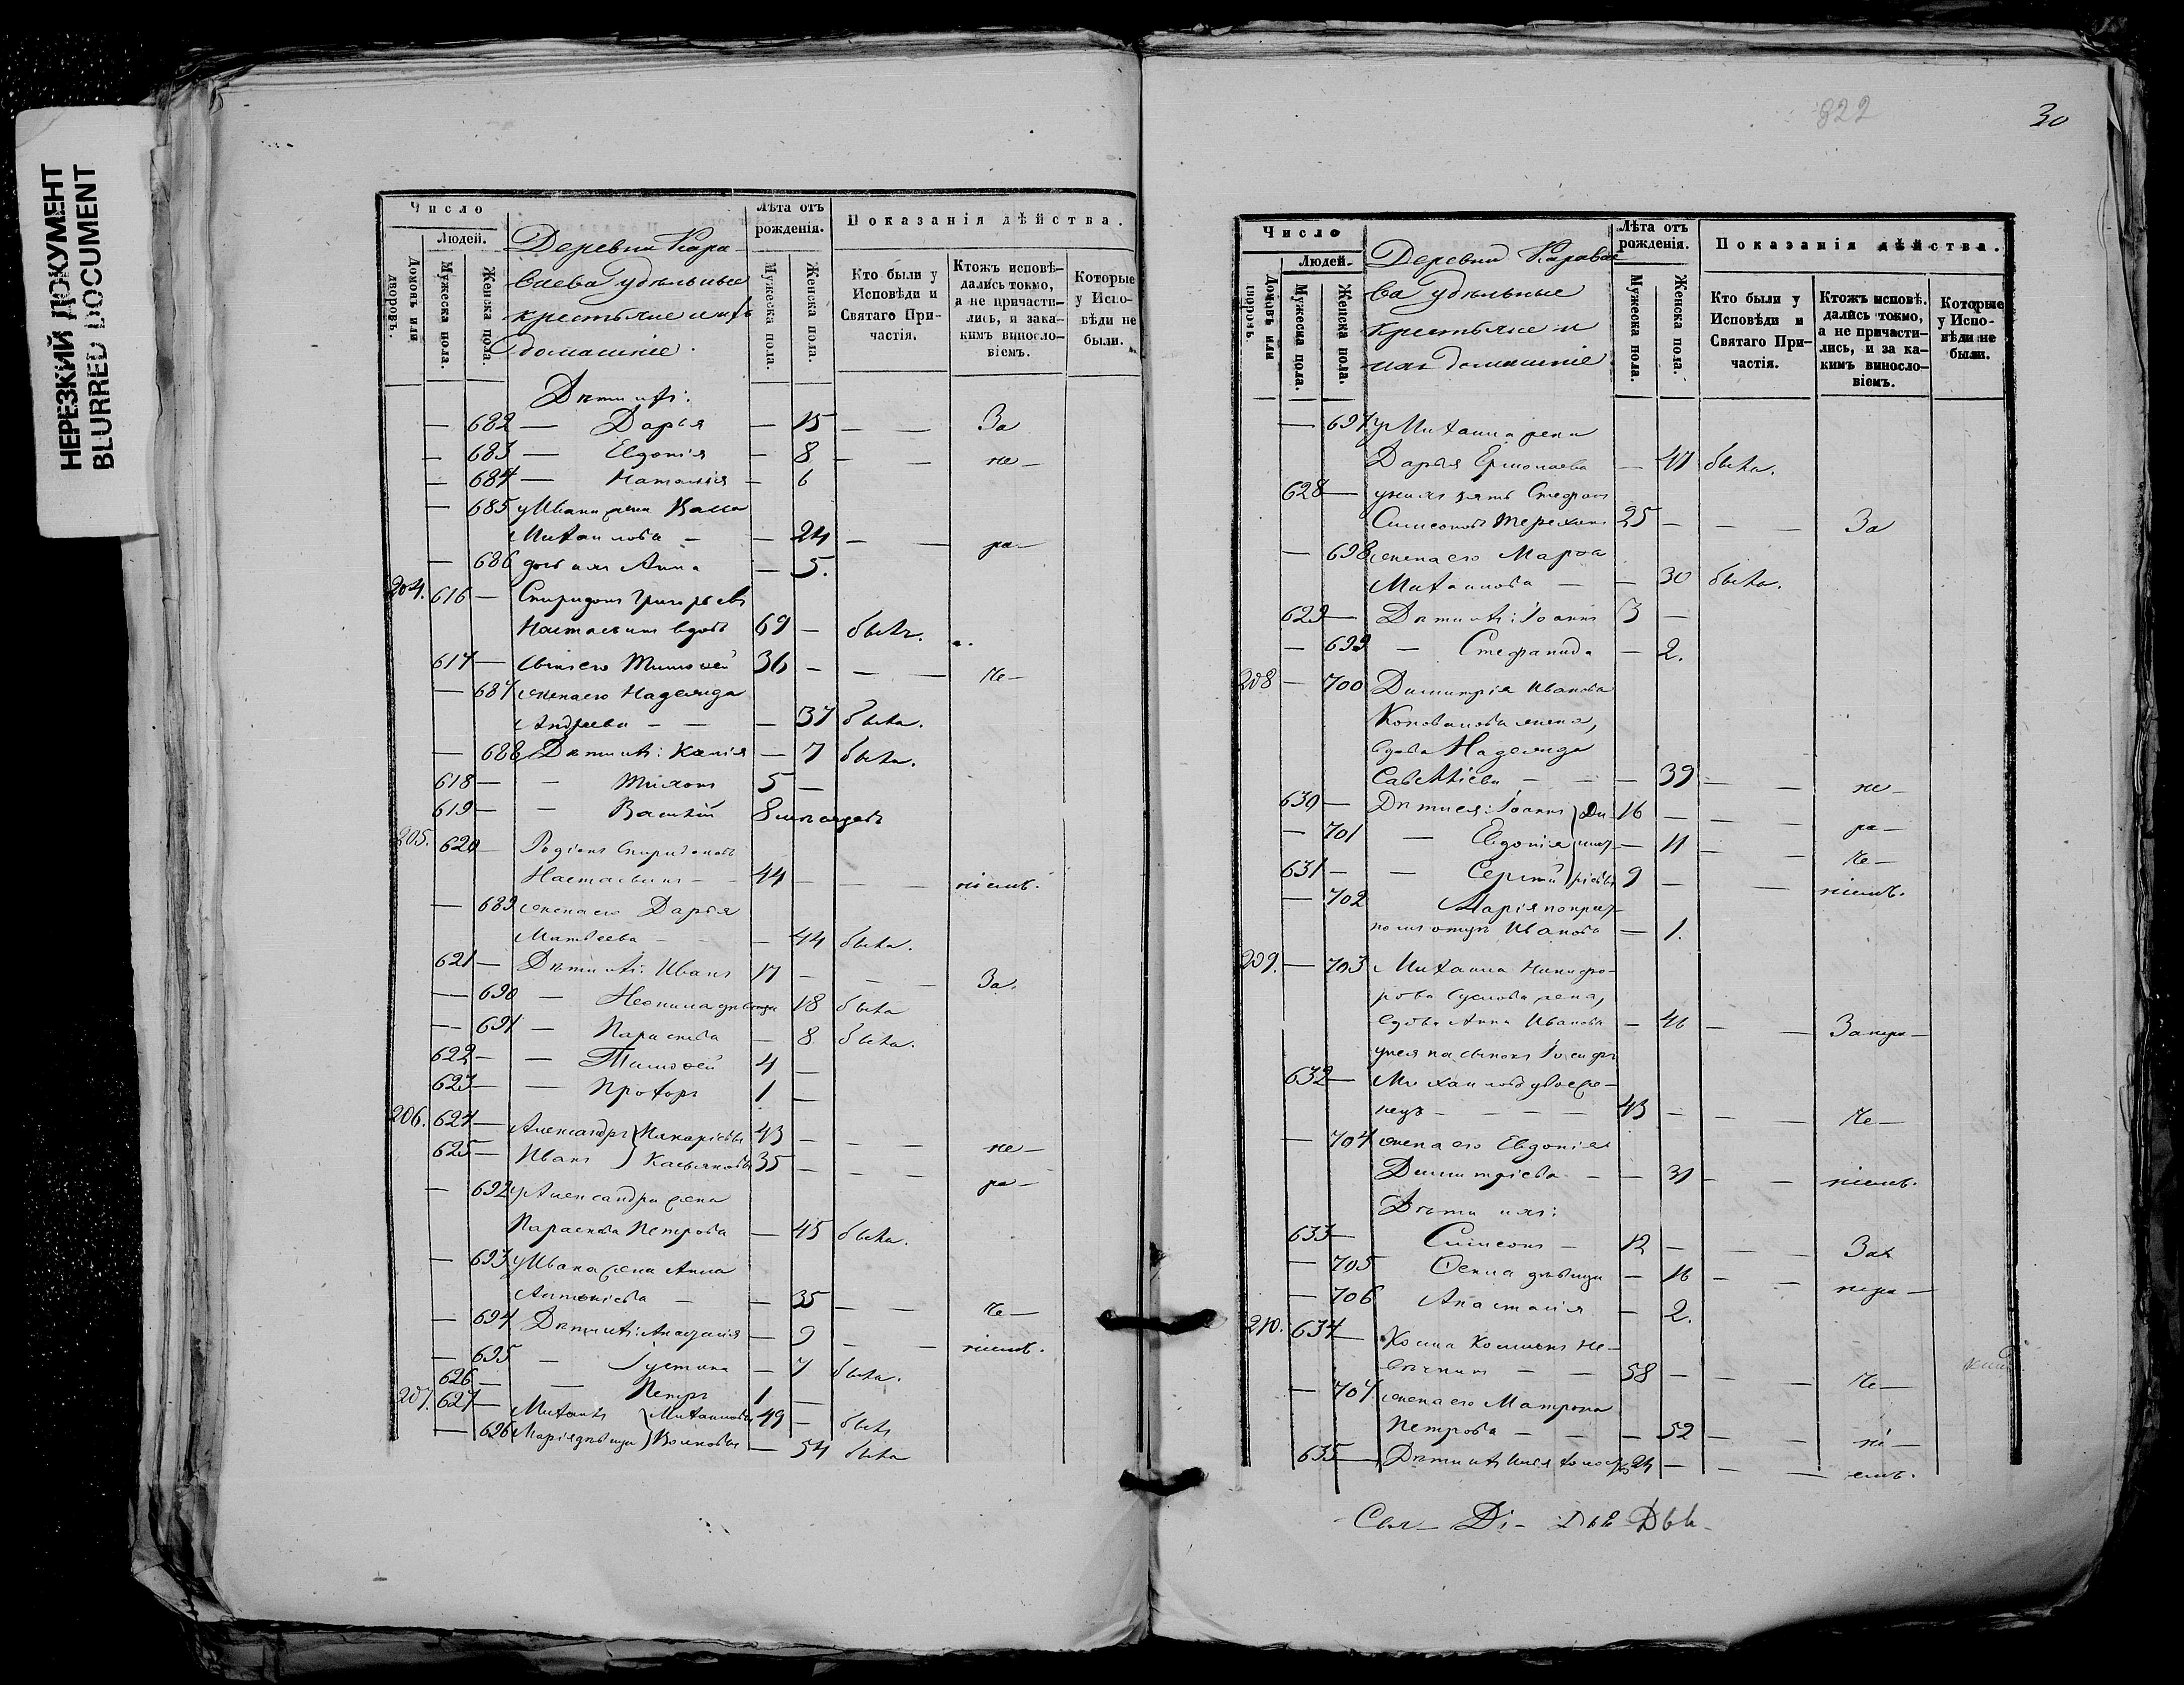 НЕРЕЗКИЙ ДОКУМЕНТ
BLURRED DOCUMENT
Число
Людей.
Домовъ или дворовъ.
Мужеска пола.
Женска пола.
Деревни Кара-
ваева удѣльные
крестьяне и ихъ
домашніе.
Лѣта отъ рожденія.
Мужеска пола.
Женска пола.
Показанія дѣйства.
Кто были у Исповѣди и Святаго Причастія.
Ктожъ исповѣдались токмо, а не причастились, и за какимъ винословіемъ.
Которые у Исповѣди не были.
Дѣти ихъ:
— 682 — Дарья — 15 — — За
— 683 — Евдокія — 8 — — не —
— 684 — Наталія — 6
— 685 у Ивана жена
Михаилова — — 24 — — ра —
— 686 дочь ихъ Анна — 5.
204. 616 — Спиридонъ Григорьевъ
вдовъ 69 — былъ.
617 — сынъ его Тимоѳей 36 — — — че —
— 687 жена его Надежда
Андреева — — — 37 была.
— 688 Дѣти ихъ: Ксенія — 7 была.
618 — — Тихонъ 5 —
619 — — Василій 8
205. 620 — Родіонъ Спиридоновъ
44 — — — ніемъ.
— 689 жена его Дарья
Матвеева — — 44 была.
621 — Дѣти ихъ: Иванъ 17 — — — За.
— 690 — Неонила дѣвица 18 была
— 691 — Параскева — 8 была.
622 — — Тимоѳей 4 —
623 — — Прохоръ 1 —
206. 624 — Александръ } Макаріевы 43 — — — не —
625 — Иванъ } Касьяновы 35 — — — ра —
— 692 у Александра жена
Параскева Петрова — 45 была.
— 693 у Ивана жена Анна
Антоніева — — 35 — — че —
— 694 Дѣти ихъ: Анастасія — 9 — — ніемъ.
— 695 — Іустина — 7 была.
626 — — Петръ 1 —
207. 627 — Михаилъ } Михаиловы 49 — былъ
— 696 Марія дѣвица } Волковы — 54 была
822
30
Число
Людей.
Домовъ или дворовъ.
Мужеска пола.
Женска пола.
Деревни Каравае-
ва удѣльные
крестьяне и
ихъ домашніе
Лѣта отъ рожденія.
Мужеска пола.
Женска пола.
Показанія дѣйства.
Кто были у Исповѣди и Святаго Причастія.
Ктожъ исповѣ. дались токмо, а не причастились, и за какимъ винословіемъ.
Которые у Исповѣди не были.
— 697 у Михаила жена
Дарья Ермолаева — 47 была.
628 — у нихъ зять Стефанъ
Симеоновъ 25 — — — За
— 698 жена его Марѳа
Михаилова — — 30 была.
629 — Дѣти ихъ: Іоаннъ 3 —
— 699 — Стефанида — 2.
208 — 700 Димитрія Иванова
жена,
вдова Надежда
Савельіева — — — 39 — — не —
630 — Дѣти ея: Іоаннъ } Ди- 16 — — — ра —
— 701 — Евдокія } мит- — 11 — — че —
631 — — Сергѣй } ріевы 9 — — — ніемъ.
— 702 Марія
по отцу Иванова — 1.
209. — 703 Михаила Никифо-
рова жена,
вдова Анна Иванова — 46 — — За нера —
у нея пасынокъ Іосифъ
632 — Михаиловъ
43 — — — че —
— 704 жена его Евдокія
Димитріева — — 31 — — ніемъ.
Дѣти ихъ:
633 — Симеонъ — 12 — — — За
— 705 Ѳекла дѣвица — 16 — — нера —
— 706 Анастасія — 2.
210. 634 — Косма Косминъ
58 — — — че —
— 707 жена его Матрона
Петрова — — — 52 — — ні —
635 — Дѣти ихъ Илья холостъ 24 — — — емъ.